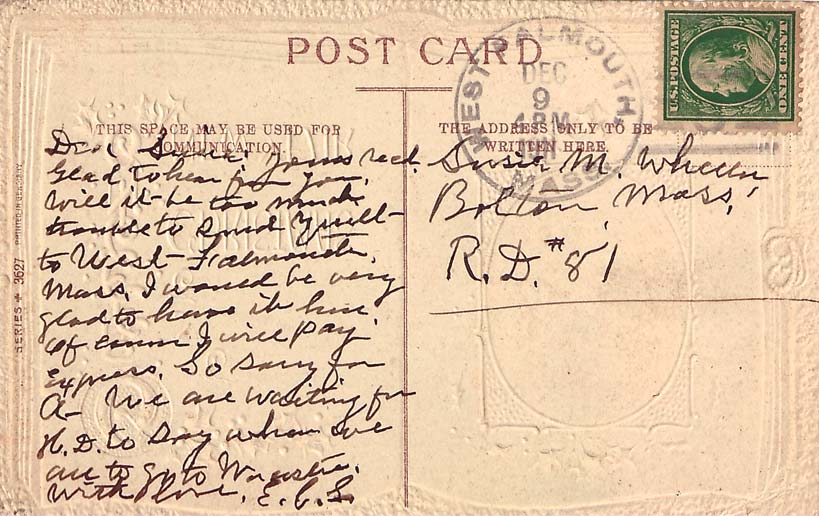 POST CARD
THIS SPACE MAY BE USED FOR
COMMUNICATION.
THE ADDRESS ONLY TO BE
WRITTEN HERE.
WEST FALMOUTH
DEC
9
4 PM
MASS.
U.S. POSTAGE
SERIES 3627 PRINTED IN GERMANY
Dear Susie; Yours recd.
Glad to hear from you.
Will it be too much
trouble to send quilt
to West-Falmouth,
Mass. I would be very
glad to have it here
of course I will pay
express. So sorry for
A- We are waiting for
H.D. to say when we
are to go to Worcester.
With love, E.C.S.
Susie M. Wheeler
Bolton, Mass,
R.D. #81